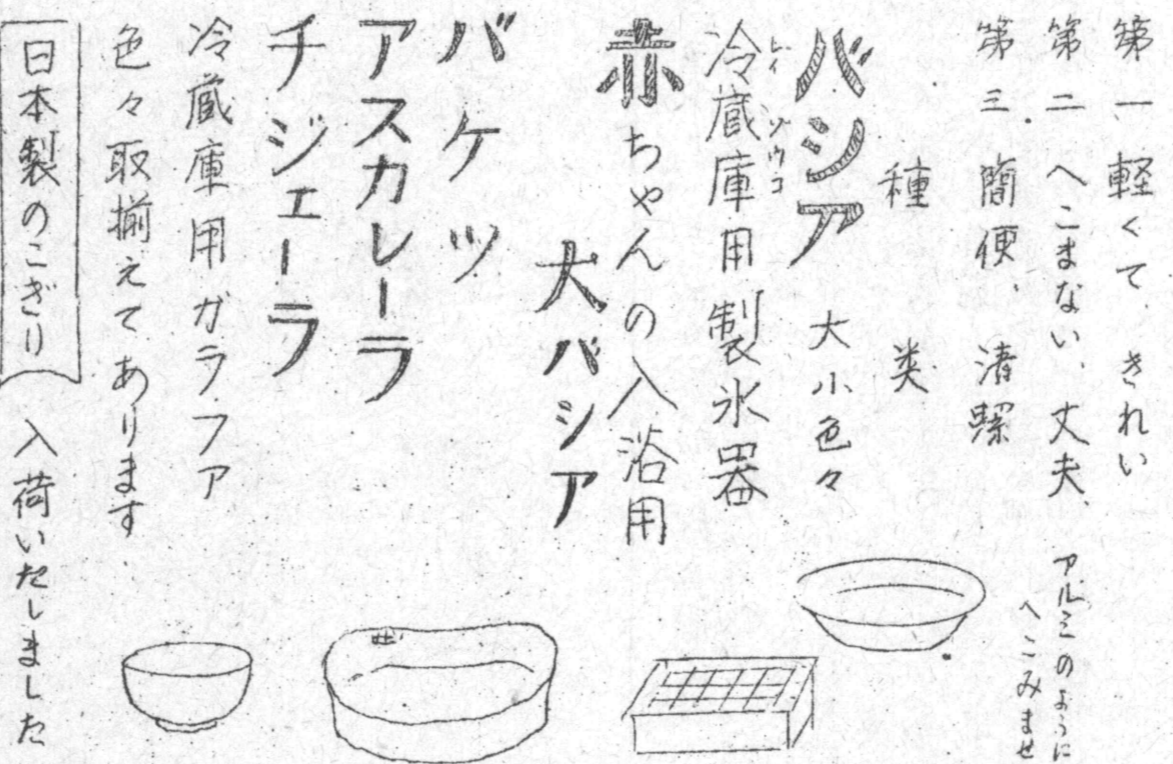 第一 軽くて きれい
第二 へこまない 丈夫 アルミのように
へこみませ
第三 簡便、清潔
種類
バシア 大小色々
冷蔵庫用製氷器
レイゾウコ
赤ちゃんの入浴用
大バシア
バケツ
アスカレーラ
チジェーラ
冷蔵庫用ガラファ
色々取揃えてあります
日本製のこぎり 入荷いたしました